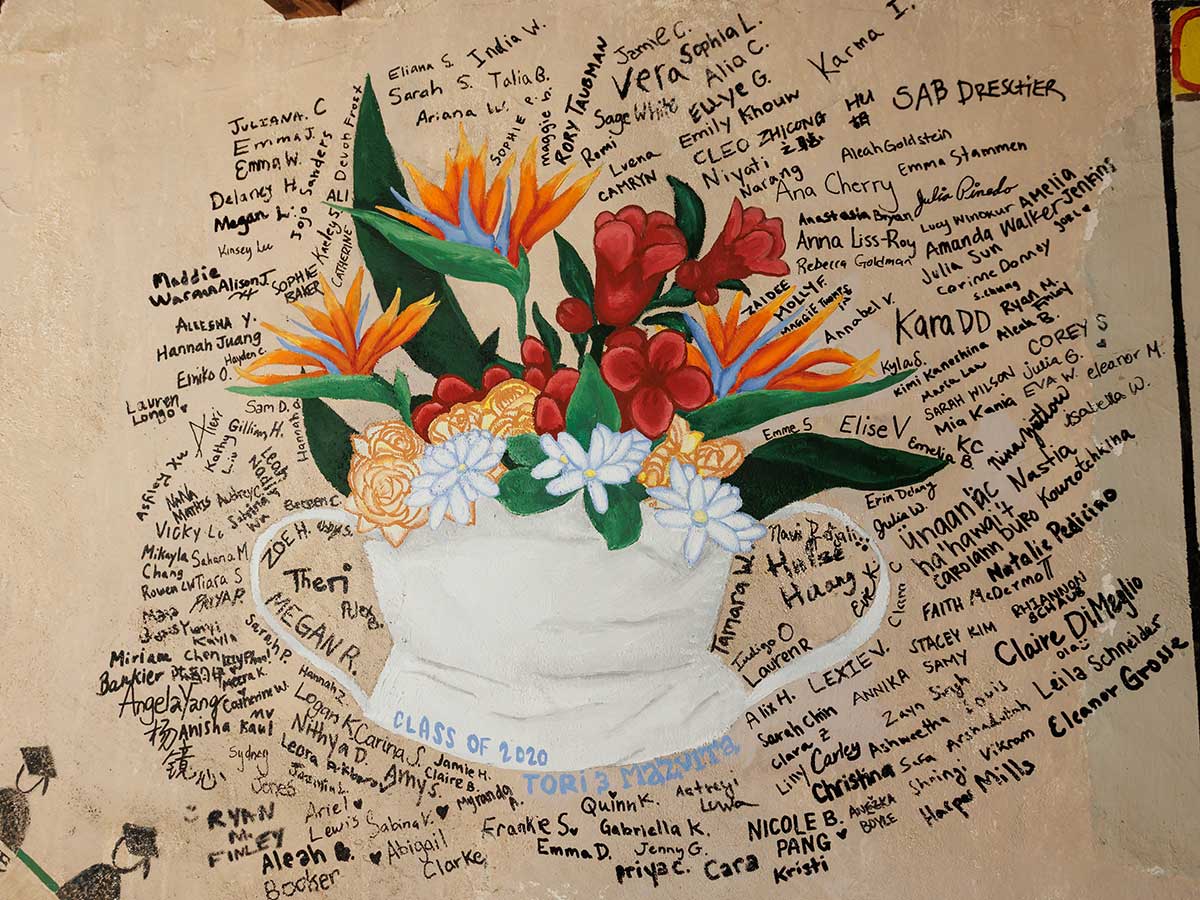 Eliana S.
India W.
Sarah S.
Talia B.
Ariana W.
SOPHIE P.
maggie b.
RORY TAUBMAN
Jamie C.
Vera
Sophia L.
Alia C.
Sage White
Romi
Ellye G.
Emily Khouw
CLEO ZHICONG
Lvena
CAMRYN
Niyati
Narang
Karma I.
HU
SAB DRESCHER
Aleah Goldstein
Emma Stammen
Ana Cherry
Julia Pinedo
Anastasia Bryan
Lucy Winokur
AMELIA
Jenkins
Anna Liss-Roy
Amanda Walker
Rebecca Goldman
Julia Sun
Corinne Donney
S. Chung
JULIANA. C
Emma J.
Emma W.
Delaney H.
Megan L.
Jojo Sanders
ALI Devon Frost
Keley S.
CATHERINE
Kinsey Lu
Maddie
Warman
Alison J.
SOPHIE
BAKER
ALEESHA Y.
Hannah Juang
Hayden C.
Emiko O.
Lauren
Longo
Sam D.
Hannah d
ZAIDEE
MOLLY F.
Annabel V.
Kara DD
Ryan M.
Finley
Aleah B.
COREY S
Kyla S.
Kimi Kaneshina
Maria Lau
SARAH WILSON
Julia G.
Mia Kania
EVA W.
eleanor M.
Isabella W.
Emme S
Elise V
Emelia B
KC
Nastia
Kourotchkina
Kathy
Liu
Gillian H.
Leah
NaNa
Mathis
Audrey C
Vicky Li
Erin Delang
Julia W.
ünaanjac
ha'hawa't
CAROLANN DURO
Natalie Pedicino
Mikayla
Chang
Sahana M
Rowen LW
Tiara S
PRIYA P.
Maia
Kayla
ZOE H.
Theri
Alex
MEGAN R.
Tamara W.
Huang
Eve K
Clara C
Indigo O
Lauren R
FAITH McDermott
RHIANNON
SCHAUB
Claire DiMaglio
STACEY KIM
SAMY
ANNIKA
LEXIE V.
Alix H.
Leila Schneider
Eleanor Grosse
Miriam Chen
Bankier
Meera K.
Angela Yang
Catherine W.
Sarah P.
Hannah Z.
Anisha Kaul
MV
杨
镜
心
Logan K
Carina S.
Nithya D.
Sydney
Jones
Amy S.
Jamie H.
Claire B.
Myranda
A.
CLASS OF 2020
Sarah Chin
Clara Z
Lilly
Carley
Ashweetha
Zayn Singh
Louis
Christina
Safa
Shringi
Vikram
Harper Mills
RYAN
M.
FINLEY
Ariel
Lewis
Sabina V.
Aleah B.
Booker
Abigail
Clarke
Franke S.
Quinn K.
Gabriella K.
Emma D.
Jenny G.
Priya C.
Cara
NICOLE B.
PANG
Kristi
ANEZKA
BOYLE